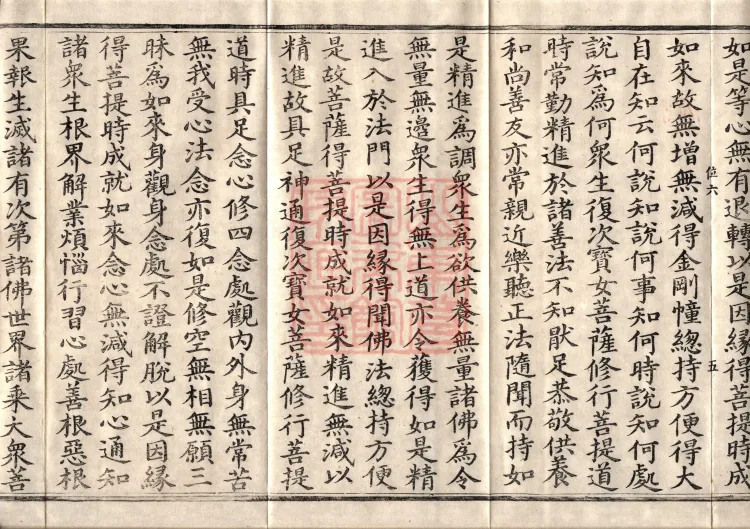 如是等心無有退轉以是因緣得菩提時成
如來故無增無減得金剛幢總持方便得大
自在知云何說知說何事知何時說知何處
說知爲何衆生復次寶女菩薩修行菩提道
時常勤精進於諸善法不知猒足恭敬供養
和尚善友亦常親近樂聽正法隨聞而持如
是精進爲調衆生爲欲供養無量諸佛爲令
無量無邊衆生得無上道亦令獲得如是精
進入於法門以是因緣得聞佛法總持方便
是故菩薩得菩提時成就如來精進無減以
精進故具足神通復次寶女菩薩修行菩提
道時具足念心修四念處觀內外身無常苦
無我受心法念亦復如是修空無相無願三
昧爲如來身觀身念處不證解脫以是因緣
得菩提時成就如來念心無減得知心通知
諸衆生根界解業煩惱行習心處善根惡根
果報生滅諸有次第諸佛世界諸乘大衆善
位六
五